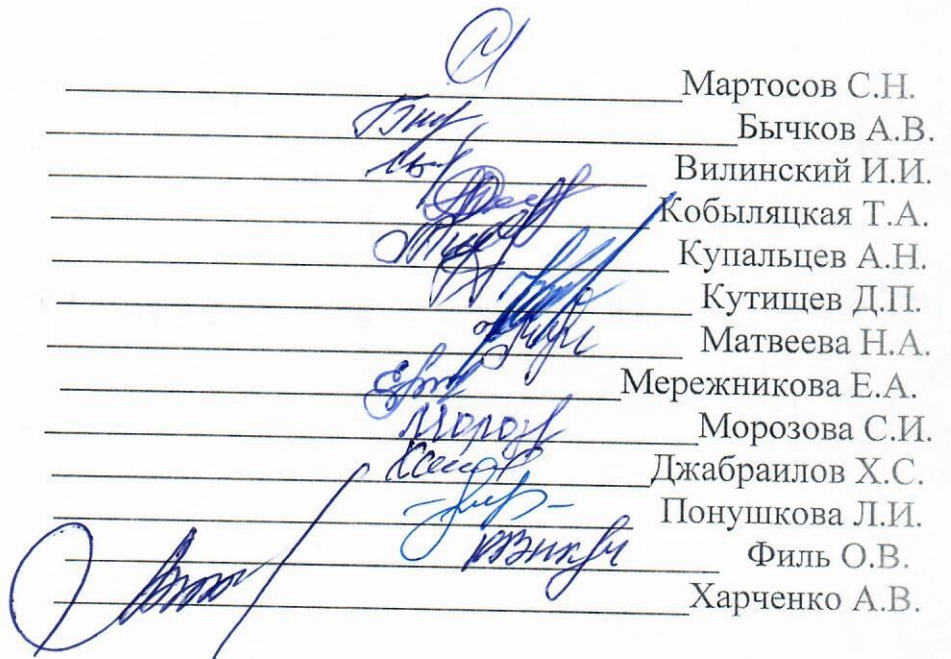 Мартосов С.Н.
Бычков А.В.
Вилинский И.И.
Кобыляцкая Т.А.
Купальцев А.Н.
Кутищев Д.П.
Матвеева Н.А.
Мережникова Е.А.
Морозова С.И.
Джабраилов Х.С.
Понушкова Л.И.
Филь О.В.
Харченко А.В.